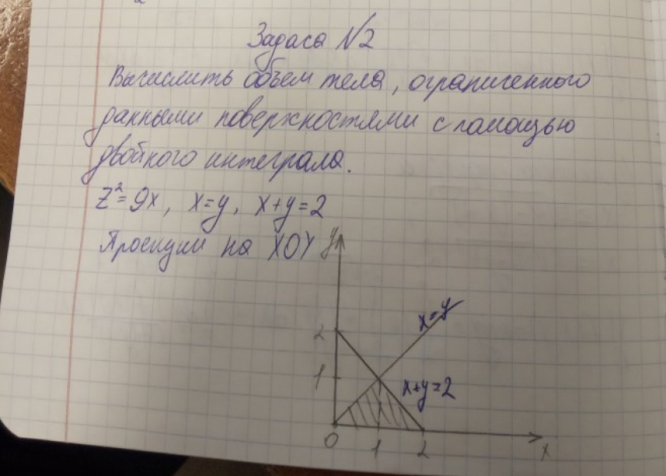 Задача №2
Вычислить объем тела, ограниченного
данными поверхностями с помощью
двойного интеграла.
Z²=9x, x=y, x+y=2
Проекции на XOY
y
x=y
2
1
x+y=2
0 1 2 x